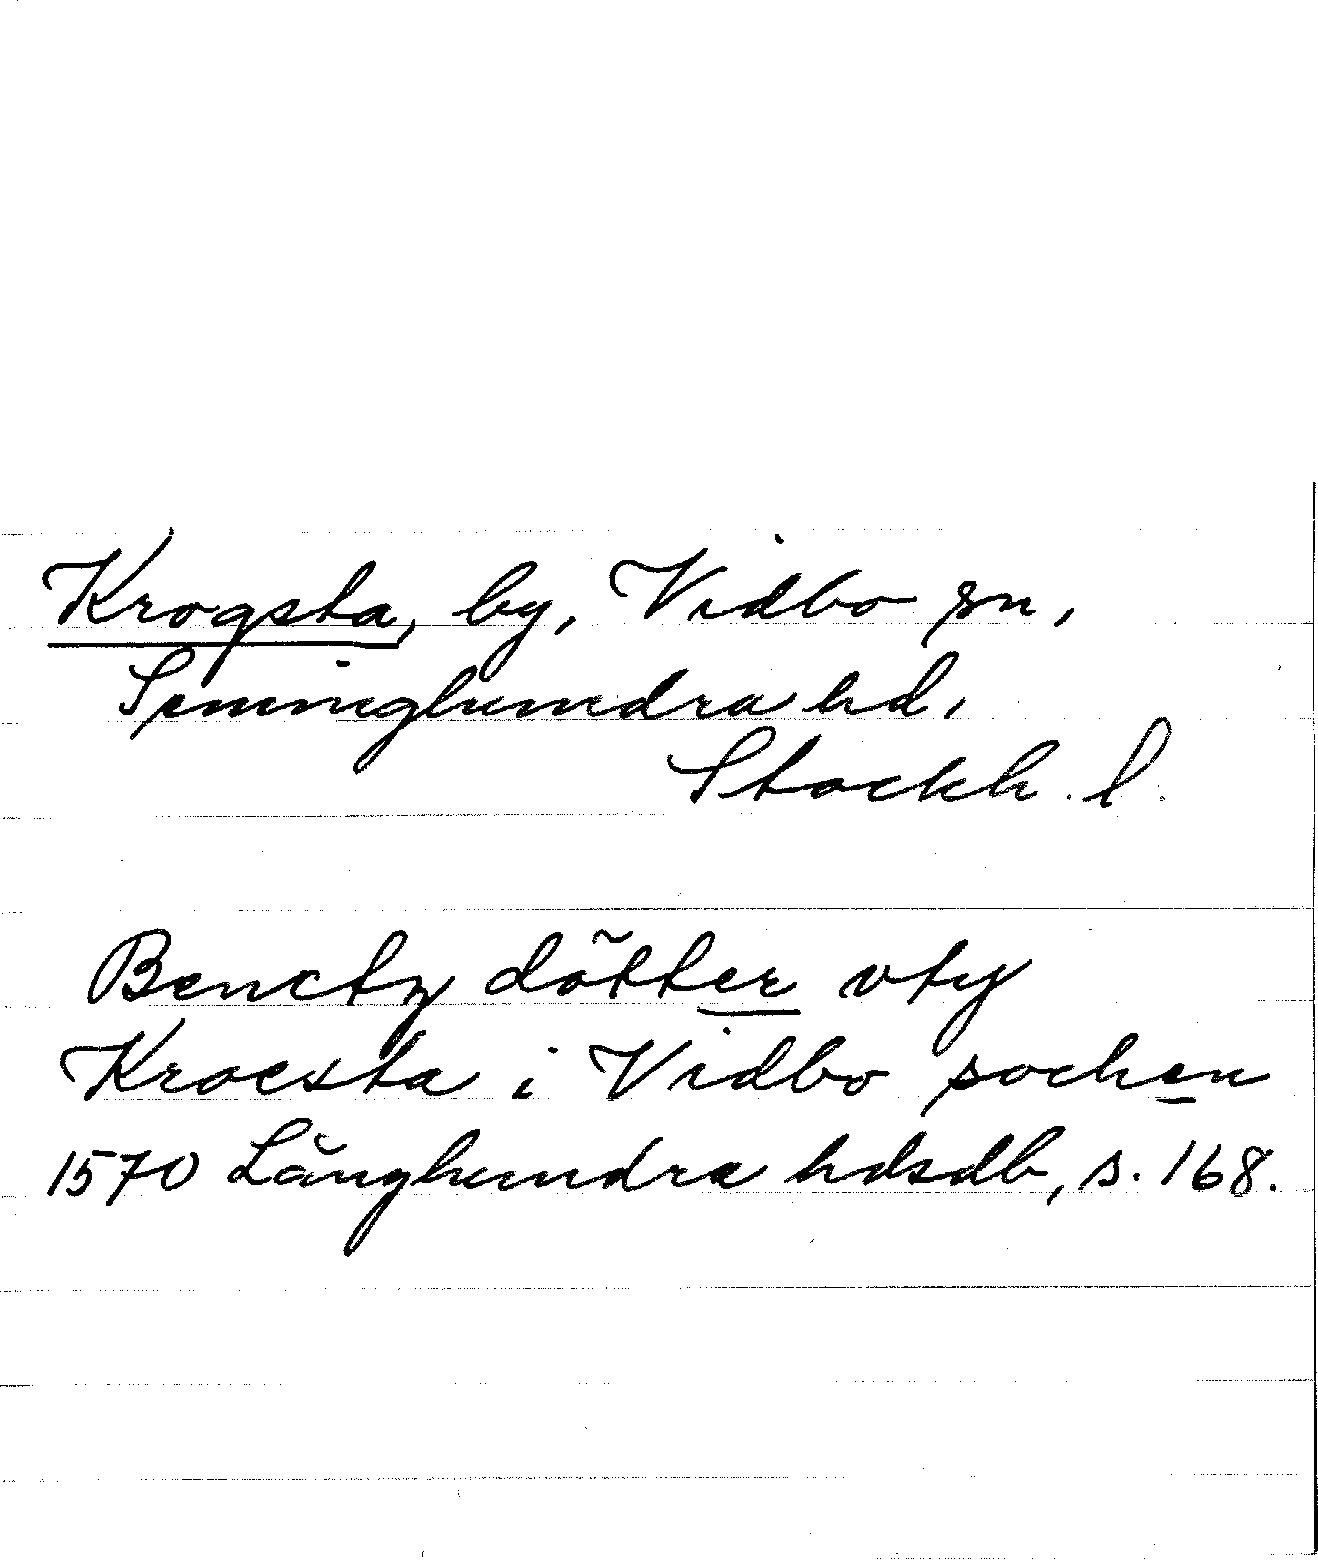 Krogsta, by, Vidbo sn,
Seminghundra hd,
Stockh. l.
Benctz dötter vty
Krocsta i Vidbo sochen
1570 Långhundra hdsdb, s. 168.